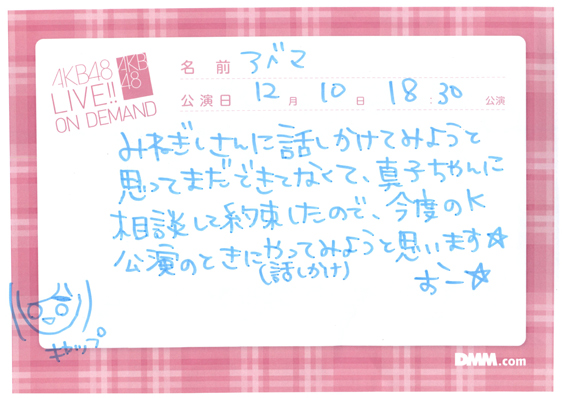 AKB48
LIVE!!
ON DEMAND
AKB
48
名 前 アベマ
公演日 12 月 10 日 18:30 公演
みねぎしさんに話しかけてみようと
思ってまだできてなくて、真子ちゃんに
相談して約束したので、今度のK
公演のときにやってみようと思います☆
(話しかけ)
おー☆
キャップ
DMM.com